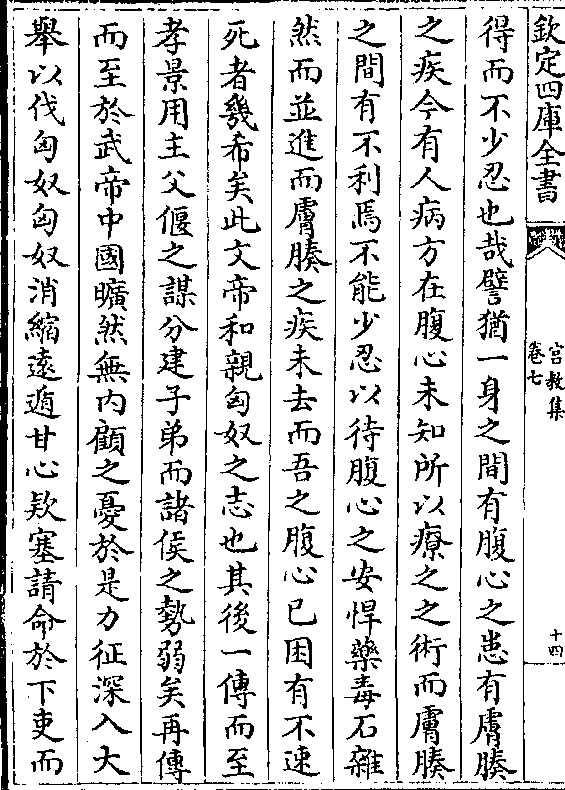 欽定四庫全書
宮教集
卷七
十四
得而不少忍也哉譬猶一身之間有腹心之患有膚腠
之疾今有人病方在腹心未知所以療之之術而膚腠
之間有不利焉不能少忍以待腹心之安悍藥毒石雜
然而並進而膚腠之疾未去而吾之腹心已困有不速
死者幾希矣此文帝和親匈奴之志也其後一傳而至
孝景用主父偃之謀分建子弟而諸侯之勢弱矣再傳
而至於武帝中國曠然無内顧之憂於是力征深入大
舉以伐匈奴匈奴消縮逺遁甘心欵塞請命於下吏而